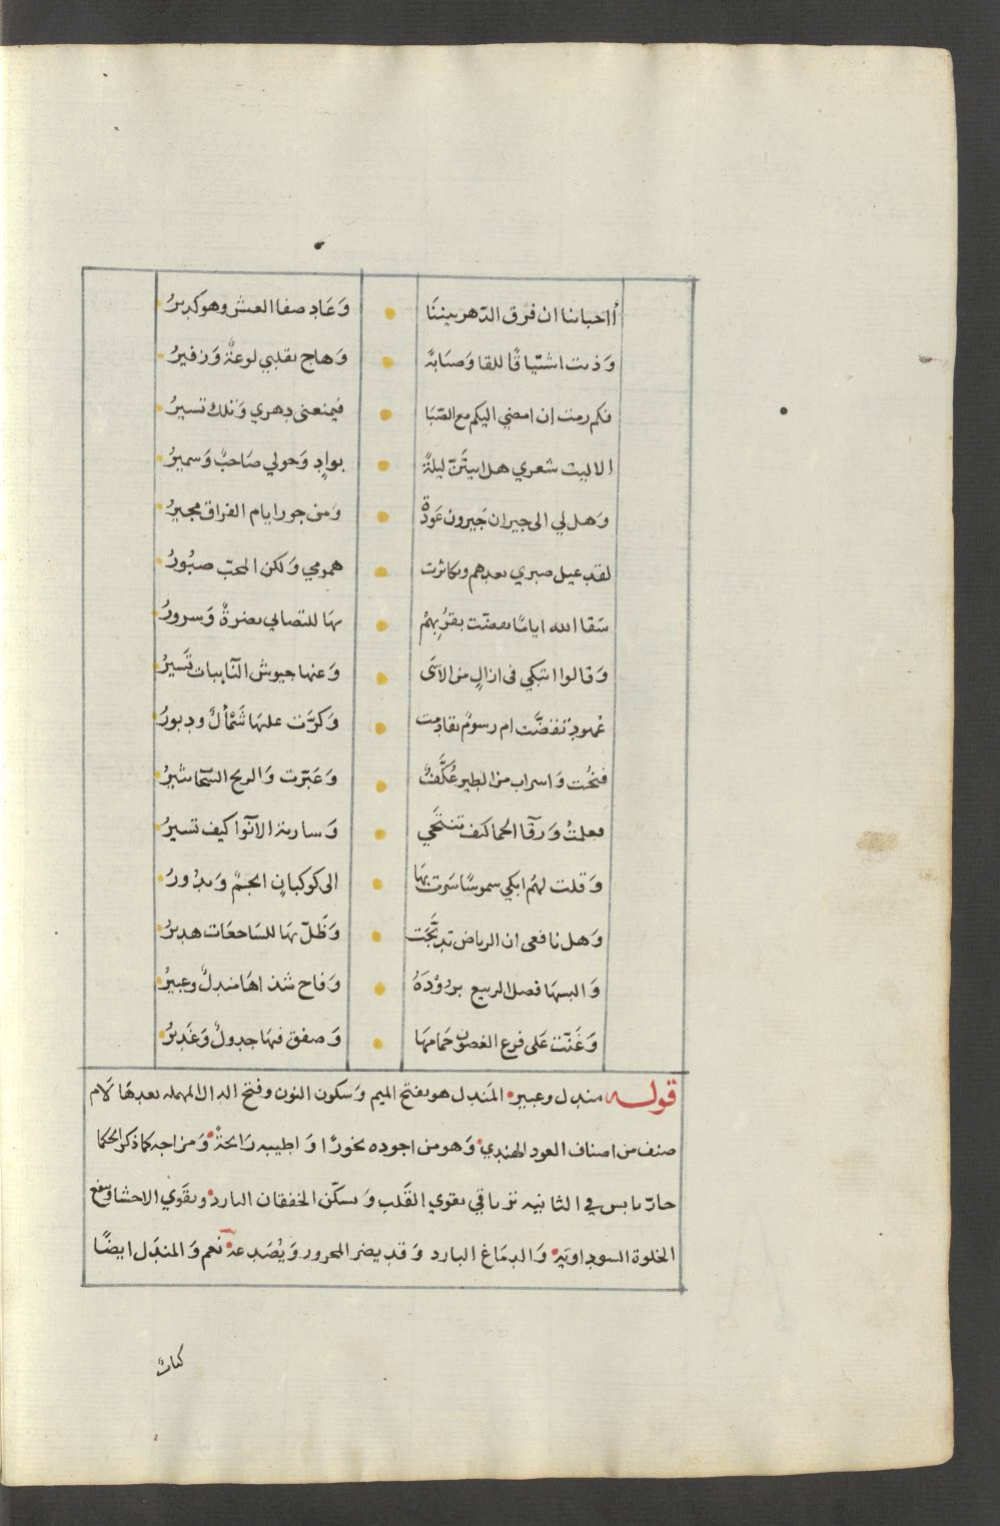 أاحبابنا ان فرق الدهر بيننا وَعَاد صفا العيش وهو كدير
وَذبت اشتياقًا للقا وَصبابة وَهاج بقلبي لوعةٌ وَزفيرُ
فكم رمت ان امضي اليكم مع الصّبَا فيمنعنى دهري وَتلك تسيرُ
الاليت شعري هل ابيتَنّ ليلةً بوادٍ وَحولي صَاحبٌ وَسميرُ
وَهل لي الى جيران جَيرون عَودةٌ وَمن جور ايام الفراق مجيرُ
لقد عيل صبري بعدهم وتكاثرت همومي وَلكن المحبّ صبُورُ
سَقا الله اياما تقضت بقربهمْ بهَا للتصابي نضرةٌ وَسرورُ
وَقالوا اتبكي فى ازالٍ من الاسَى وَعنها جيوش النآيبات تَسيرُ
عُهودٌ تقضَّت ام رسومٌ تقادمت وَكرَّت عليهَا شَمْألٌ ودبورُ
فنُحت وَاسراب من الطير عُكَّفٌ وَعَبّرت وَالريح السّحاب تثيرُ
فعلمتُ وَرقآ الحما كيف تنتَحي وَسارية الانوآ كيف تسيرُ
وَقلت لهُم ابكي شموسًا سَرت بهَا الى كوكبانٍ انجمٌ وَبدُورُ
وَهل نافعى ان الرياض تدبّجَت وَظَلّ بهَا للسَاجعَات هديرُ
وَالبسهَا فصل الربيع برُوْدَهُ وَفاح شذاهَا مندلٌ وعبيرُ
وَغَنّت عَلى فرع الغصون حَمامهَا وَصفق فيهَا جدولٌ وَغَديرُ
قوله مندل وعبير المَندل هو بفتح الميم وَسكون النون وفتح الدال المهمله بعدهَا لَام
صنف من اصناف العود الهندي وَهو من اجوده بخورًا وَاطيبه رَايحةً وَمزاجه كما ذكر الحكما
حارّ يابس في الثانيه ترياقي يقوي القَلب وَيسكّن الخفقان البارد ويقَوي الاحشا وينفع
الخلوة السوداويّه وَالدمَاغ البارد وَقد يضر المحرور وَيُصَدعهُ نعم وَالمندَل ايضًا
كباث